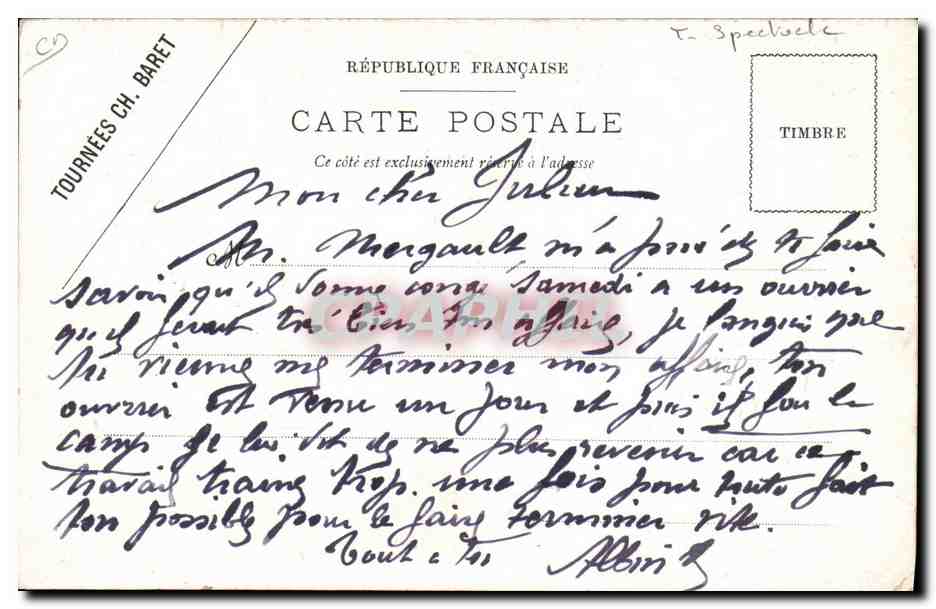 T- Spectacle
CD
TOURNÉES CH. BARET
RÉPUBLIQUE FRANÇAISE
CARTE POSTALE
TIMBRE
Ce côté est exclusivement réservé à l'adresse
Mon cher Julien
M. Mergault m'a prié de te faire
savoir qu'il donne congé samedi a un ouvrier
qu'il ferait très bien ton affaire, je languis que
tu vienne me terminer mon affaire, ton
ouvrier est venu un jour et puis il fou le
camp je lui dit de ne plus revenir car ce
travail traine trop. une fois pour toute fait
ton possible pour le faire terminer vite.
Tout a toi Albin
CARPHIL